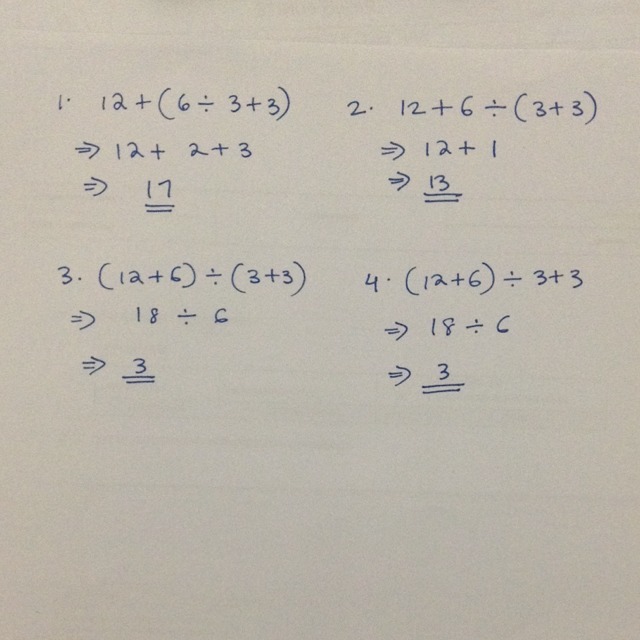 1. 12+(6÷ 3+3)
⇒ 12+ 2+3
⇒ 17
2. 12+6÷(3+3)
⇒ 12+1
⇒ 13
3. (12+6)÷(3+3)
⇒ 18 ÷ 6
⇒ 3
4. (12+6)÷ 3+3
⇒ 18÷6
⇒ 3